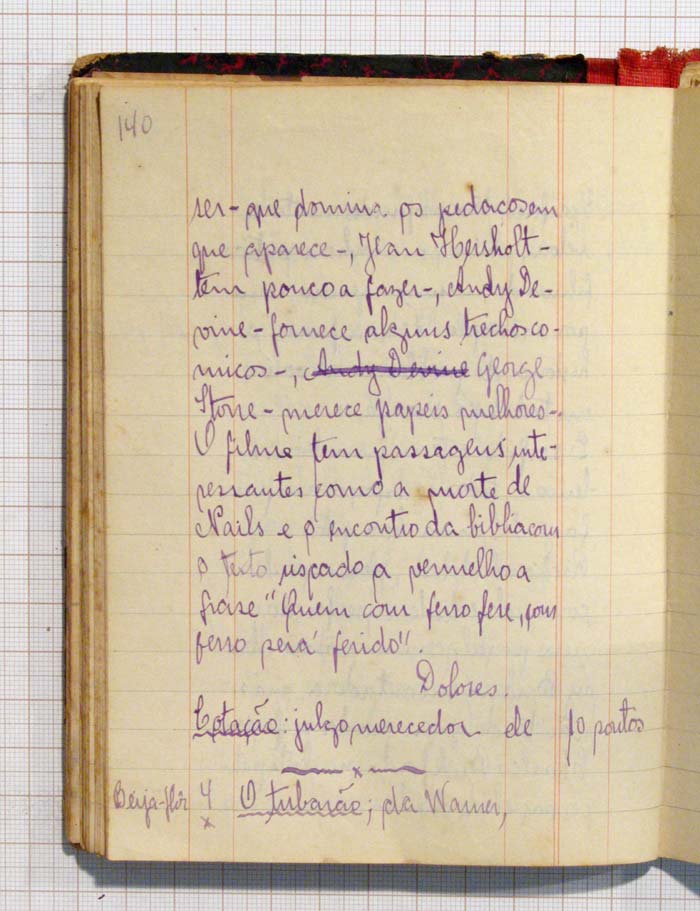 140
ser- que domina os pedaços em
que aparece-, Jean Hersholt-
tem pouco a fazer-, Andy De-
vine- fornece alguns trechos co-
micos-, Andy Devine George
Stone- merece papeis melhores-.
O filme tem passagens inte-
ressantes como a morte de
Nails e o encontro da biblia com
o texto riscado a vermelho a
frase "Quem com ferro fere, com
ferro será ferido".
Dolores
Cotação: julgo merecedor de 10 pontos
x
Beija-flôr 4 O tubarão; da Warner,
x